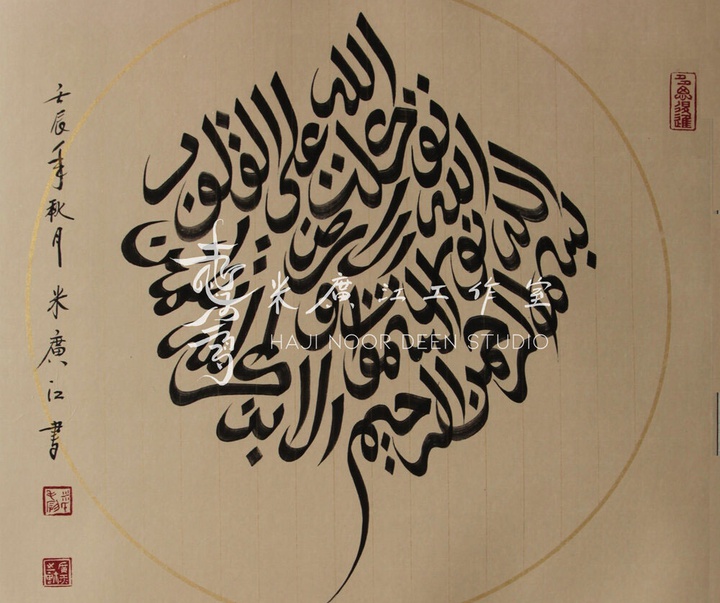 بسم الله الرحمن الرحيم
توكلت على الله
الله نور السموات والارض
الا بذكر الله تطمئن القلوب
壬辰年秋月 米廣江書
米廣江工作室
HAJI NOOR DEEN STUDIO